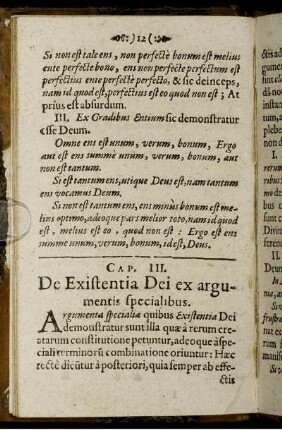 :) 12 (:
Si non est tale ens, non perfectè bonum est melius
ente perfecte bono, ens non perfecte perfectum est
perfectius ente perfectè perfecto, & sic deinceps,
nam id quod est, perfectius est eo quod non est; At
prius est absurdum.
III. Ex Gradibus Entium sic demonstratur
esse Deum.
Omne ens est unum, verum, bonum, Ergo
aut est ens summè unum, verum, bonum, aut
non est tantum.
Si est tantum ens, utique Deus est, nam tantum
ens vocamus Deum.
Si non est tantum ens, ens minùs bonum est me-
lius optimo, adeoque pars melior toto, nam id quod
est, melius est eo, quod non est: Ergo est ens
summe unum, verum, bonum, id est, Deus.
CAP. III.
De Existentia Dei ex argu-
mentis specialibus.
Argumenta specialia quibus Existentia Dei
demonstratur sunt illa quæ à rerum cre-
atarum constitutione petuntur, adeoque à spe-
ciali terminorũ combinatione oriuntur: Hæc
rectè dicũtur à posteriori, quia semper ab effe-
ctis